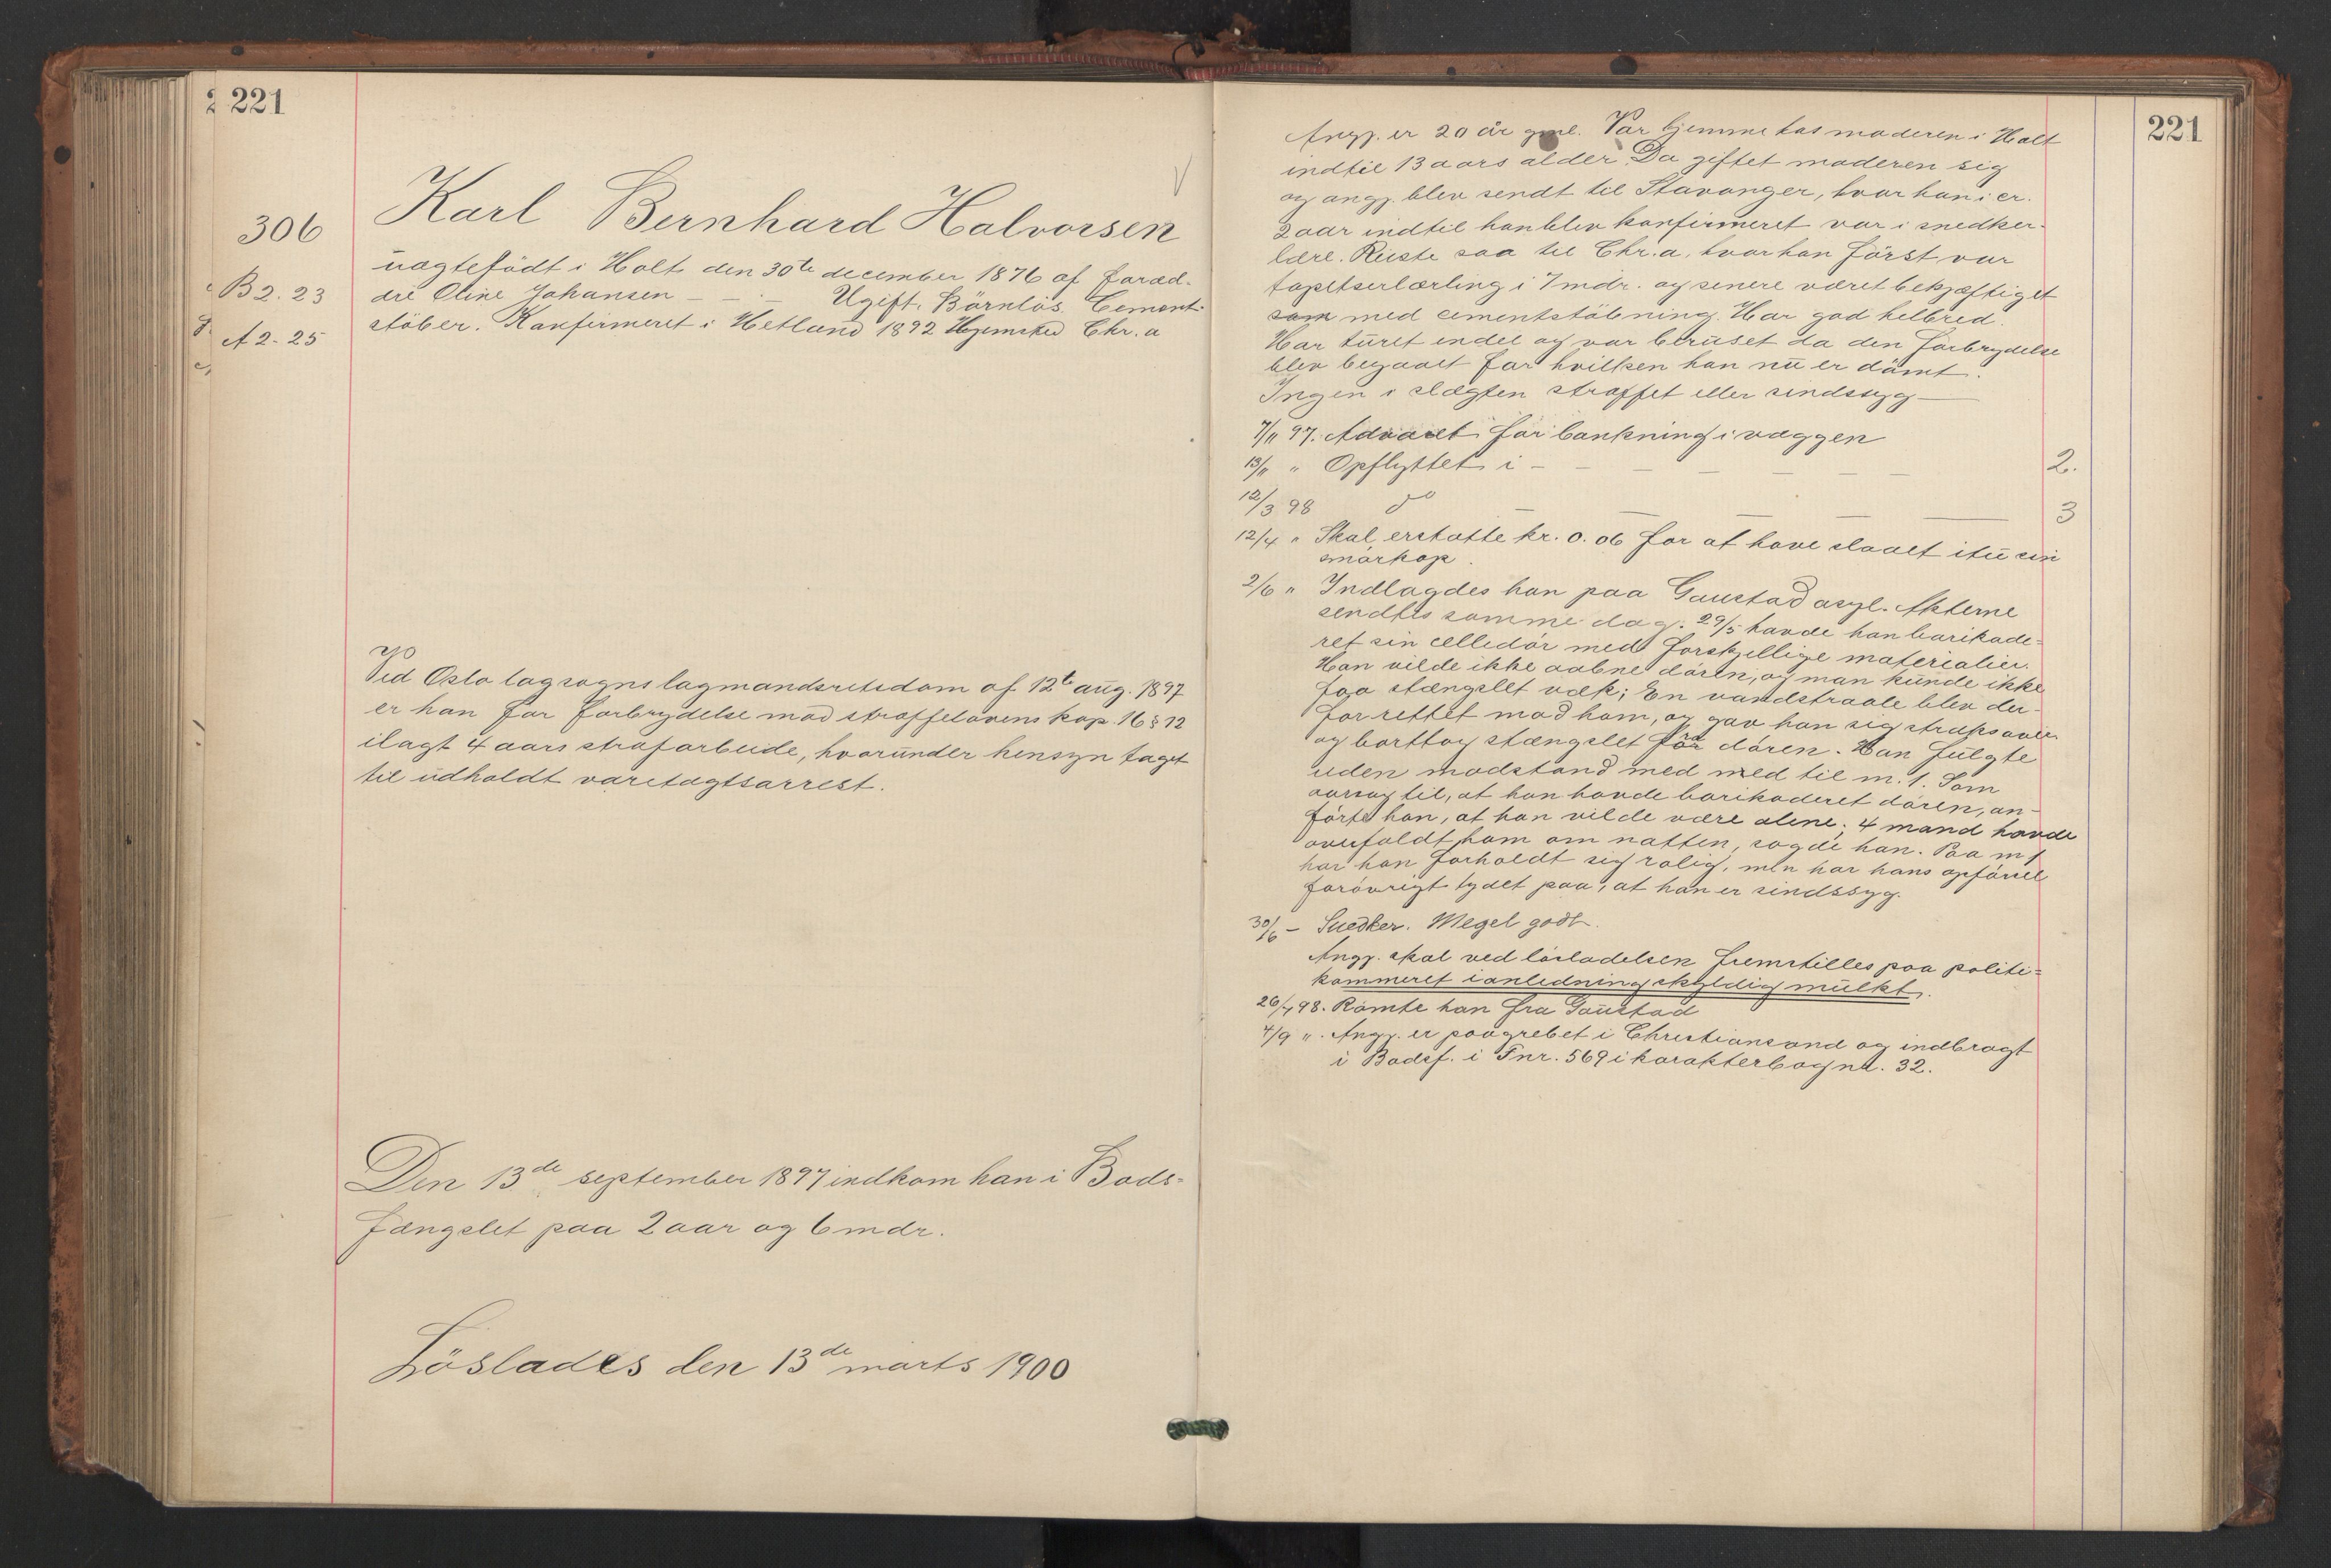 221
306
B 2. 23
A 2. 25
Karl Bernhard Halvorsen
uægtefödt i Holt den 30te december 1876 af foræl-
dre Oline Johansen — Ugift. Börnlös. Cement-
stöber. Konfirmeret i Hetland 1892 Hjemsted Chr.a
Ved Oslo lagsogns lagmandsretsdom af 12te aug. 1897
er han for forbrydelse mod straffelovens kap. 16 § 12
ilagt 4 aars strafarbeide, hvorunder hensyn taget
til udholdt varetægtsarrest.
Den 13de september 1897 indkom han i Bods-
fængslet paa 2 aar og 6 mdr.
Löslades den 13de marts 1900
221
Angj. er 20 år gml. Var hjemme hos moderen i Holt
indtil 13 aars alder. Da giftet moderen sig
og angj. blev sendt til Stavanger, hvor han i ca.
2 aar indtil han blev konfirmeret var i snedker-
lære. Reiste saa til Chr.a, hvor han först var
tapetserlærling i 7 mdr. og senere været bekjæftiget
som med cementstöbning. Har god helbred.
Har turet endel og var beruset da den forbrydelse
blev begaaet for hvilken han nu er dömt.
Ingen i slægten straffet eller sindssyg —
7/11 97. Advaret for bankning i væggen
13/11 " Opflyttet i — — — — — — 2.
12/3 98 do — — — — — 3
12/4 " Skal erstatte kr. 0.06 for at have slaaet itu sin
smörkop.
2/6 " Indlagdes han paa Gaustad asyl. Akterne
sendtes samme dag. 29/5 havde han barikade-
ret sin celledör med forskjellige materialier.
Han vilde ikke aabne dören, og man kunde ikke
faa stængslet væk; En vandstraale blev der-
for rettet mod ham, og gav han sig straks over
og borttog stængslet for dören. Han fulgte
uden modstand med ned til m. 1. Som
aarsag til, at han havde barikaderet dören, an-
förte han, at han vilde være alene; 4 mand havde
overfaldt ham om natten, sagde han. Paa m 1
har han forholdt sig rolig, men har hans opförsel
foróvrigt tydet paa, at han er sindssyg.
30/6 — Snedker. Meget godt.
Angj. skal ved lösladelsen fremstilles paa politi-
kammeret i anledning skyldig mulkt.
26/7 98. Römte han fra Gaustad
4/9 ". Angj. er paagrebet i Christiansand og indbragt
i Bodsf. i Fnr. 569 i karakterbog nr. 32.